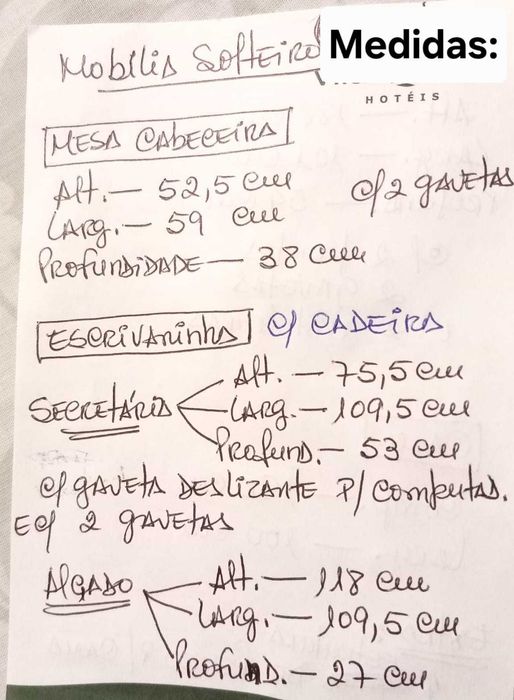 Medidas:
Mobília Solteiro
HOTÉIS
MESA CABECEIRA
Alt. — 52,5 cm
c/2 GAVETAS
Larg. — 59 cm
PROFUNDIDADE — 38 cm
ESCRIVANINHA c/ CADEIRA
Alt. — 75,5 cm
SECRETÁRIA Larg. — 109,5 cm
Profund. — 53 cm
c/ GAVETA DESLIZANTE P/ Computad.
E c/ 2 GAVETAS
ALÇADO Alt. — 118 cm
Larg. — 109,5 cm
Profund. — 27 cm